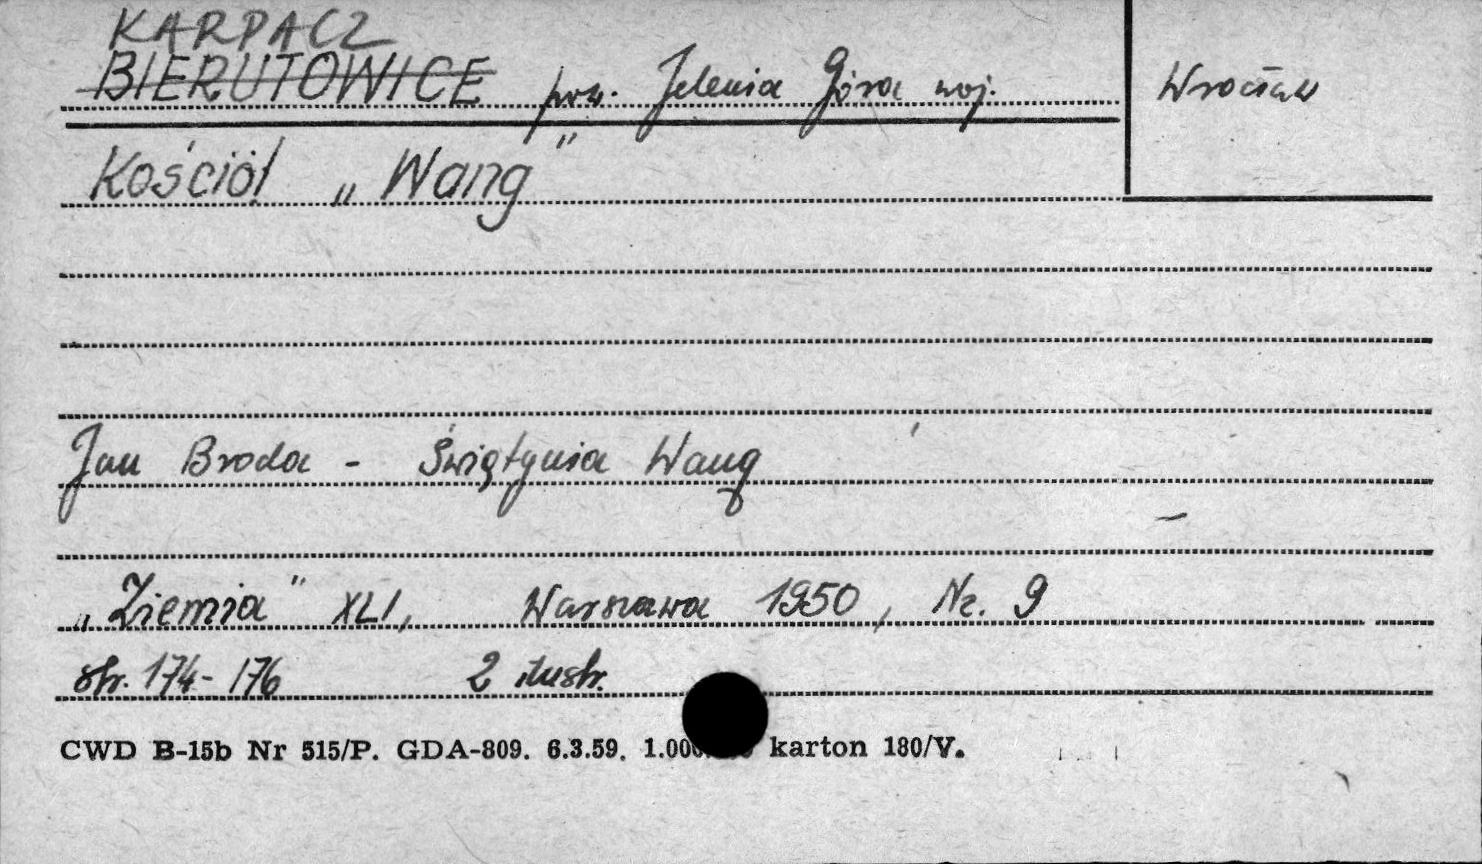 KARPACZ
BIERUTOWICE pow. Jelenia Góra woj. Wrocław
Kościół „Wang"
Jan Broda - Świątynia Wang
„Ziemia" XLI, Warszawa 1950, Nr. 9
str. 174-176 2 ilustr.
CWD B-15b Nr 515/P. GDA-809. 6.3.59. karton 180/V.